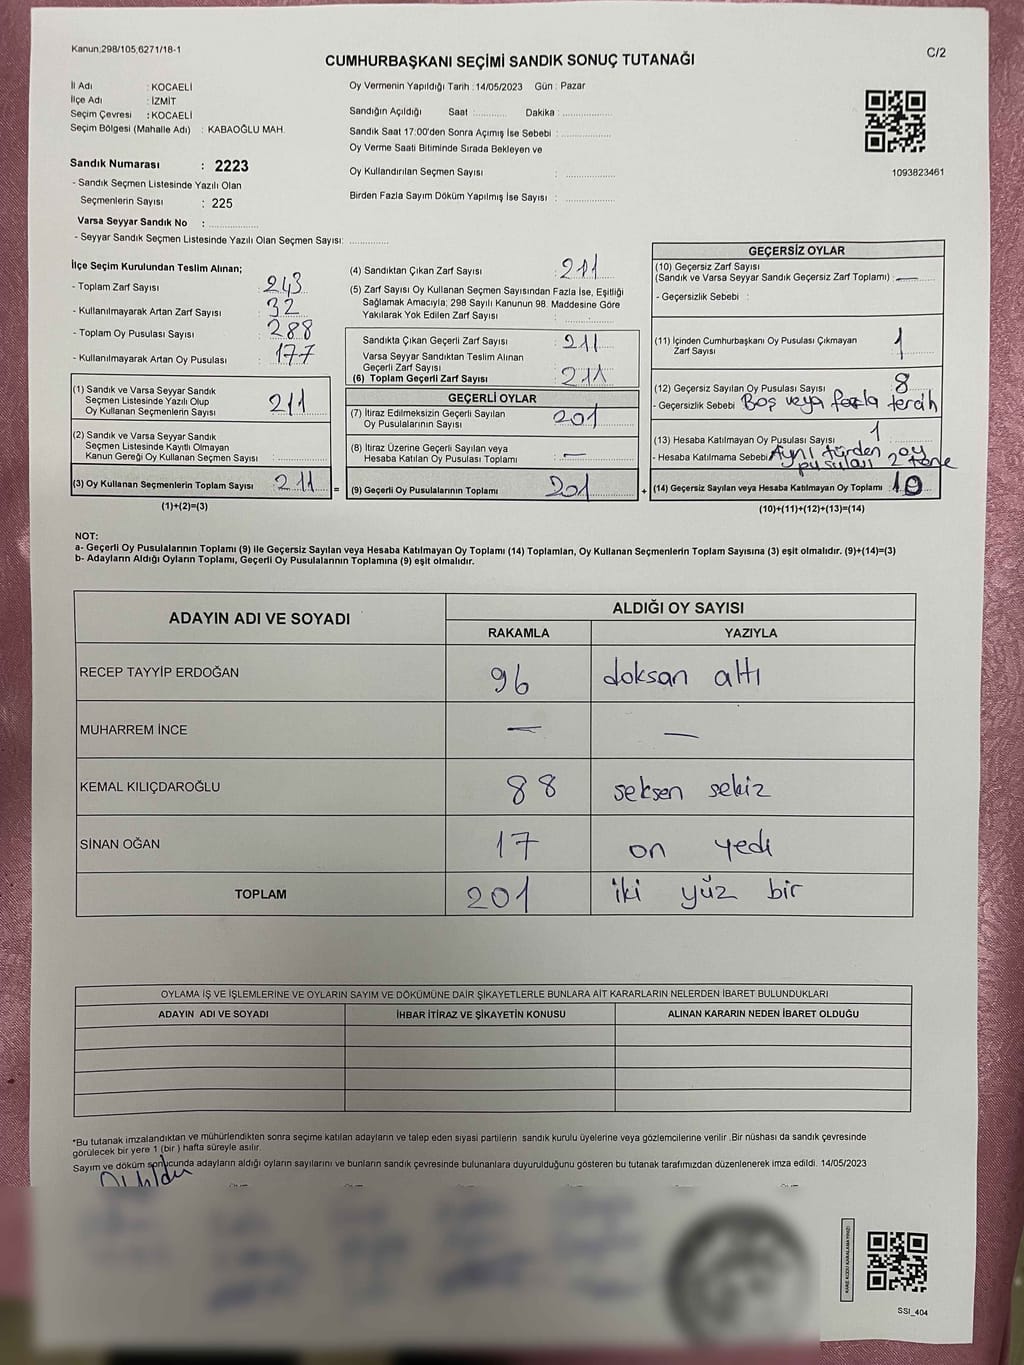 Kanun:298/105,6271/18-1
C/2
CUMHURBAŞKANI SEÇİMİ SANDIK SONUÇ TUTANAĞI
İl Adı : KOCAELİ
İlçe Adı : İZMİT
Seçim Çevresi : KOCAELİ
Seçim Bölgesi (Mahalle Adı) : KABAOĞLU MAH.
Sandık Numarası : 2223
- Sandık Seçmen Listesinde Yazılı Olan
Seçmenlerin Sayısı : 225
Varsa Seyyar Sandık No :
- Seyyar Sandık Seçmen Listesinde Yazılı Olan Seçmen Sayısı:
Oy Vermenin Yapıldığı Tarih : 14/05/2023 Gün : Pazar
Sandığın Açıldığı Saat : Dakika :
Sandık Saat 17:00'den Sonra Açımış İse Sebebi :
Oy Verme Saati Bitiminde Sırada Bekleyen ve
Oy Kullandırılan Seçmen Sayısı :
Birden Fazla Sayım Döküm Yapılmış İse Sayısı :
1093823461
İlçe Seçim Kurulundan Teslim Alınan;
- Toplam Zarf Sayısı : 243
- Kullanılmayarak Artan Zarf Sayısı : 32
- Toplam Oy Pusulası Sayısı : 288
- Kullanılmayarak Artan Oy Pusulası : 177
(1) Sandık ve Varsa Seyyar Sandık
Seçmen Listesinde Yazılı Olup
Oy Kullanan Seçmenlerin Sayısı : 211
(2) Sandık ve Varsa Seyyar Sandık
Seçmen Listesinde Kayıtlı Olmayan
Kanun Gereği Oy Kullanan Seçmen Sayısı :
(3) Oy Kullanan Seçmenlerin Toplam Sayısı : 211 =
(1)+(2)=(3)
(4) Sandıktan Çıkan Zarf Sayısı : 211
(5) Zarf Sayısı Oy Kullanan Seçmen Sayısından Fazla İse, Eşitliği
Sağlamak Amacıyla; 298 Sayılı Kanunun 98. Maddesine Göre
Yakılarak Yok Edilen Zarf Sayısı :
Sandıkta Çıkan Geçerli Zarf Sayısı : 211
Varsa Seyyar Sandıktan Teslim Alınan
Geçerli Zarf Sayısı :
(6) Toplam Geçerli Zarf Sayısı 211
GEÇERLİ OYLAR
(7) İtiraz Edilmeksizin Geçerli Sayılan
Oy Pusulalarının Sayısı : 201
(8) İtiraz Üzerine Geçerli Sayılan veya
Hesaba Katılan Oy Pusulası Toplamı : —
(9) Geçerli Oy Pusulalarının Toplamı : 201 +
GEÇERSİZ OYLAR
(10) Geçersiz Zarf Sayısı
(Sandık ve Varsa Seyyar Sandık Geçersiz Zarf Toplamı) : —
- Geçersizlik Sebebi :
(11) İçinden Cumhurbaşkanı Oy Pusulası Çıkmayan
Zarf Sayısı : 1
(12) Geçersiz Sayılan Oy Pusulası Sayısı : 8
- Geçersizlik Sebebi Boş veya fazla tercih
(13) Hesaba Katılmayan Oy Pusulası Sayısı 1
- Hesaba Katılmama Sebebi Aynı türden 2 oy
pusulası 2 tane
(14) Geçersiz Sayılan veya Hesaba Katılmayan Oy Toplamı : 10
(10)+(11)+(12)+(13)=(14)
NOT:
a- Geçerli Oy Pusulalarının Toplamı (9) ile Geçersiz Sayılan veya Hesaba Katılmayan Oy Toplamı (14) Toplamları, Oy Kullanan Seçmenlerin Toplam Sayısına (3) eşit olmalıdır. (9)+(14)=(3)
b- Adayların Aldığı Oyların Toplamı, Geçerli Oy Pusulalarının Toplamına (9) eşit olmalıdır.
ADAYIN ADI VE SOYADI
ALDIĞI OY SAYISI
RAKAMLA YAZIYLA
RECEP TAYYİP ERDOĞAN 96 doksan altı
MUHARREM İNCE — —
KEMAL KILIÇDAROĞLU 88 seksen sekiz
SİNAN OĞAN 17 on yedi
TOPLAM 201 iki yüz bir
OYLAMA İŞ VE İŞLEMLERİNE VE OYLARIN SAYIM VE DÖKÜMÜNE DAİR ŞİKAYETLERLE BUNLARA AİT KARARLARIN NELERDEN İBARET BULUNDUKLARI
ADAYIN ADI VE SOYADI İHBAR İTİRAZ VE ŞİKAYETİN KONUSU ALINAN KARARIN NEDEN İBARET OLDUĞU
*Bu tutanak imzalandıktan ve mühürlendikten sonra seçime katılan adayların ve talep eden siyasi partilerin sandık kurulu üyelerine veya gözlemcilerine verilir .Bir nüshası da sandık çevresinde
görülecek bir yere 1 (bir ) hafta süreyle asılır.
Sayım ve döküm sonucunda adayların aldığı oyların sayılarını ve bunların sandık çevresinde bulunanlara duyurulduğunu gösteren bu tutanak tarafımızdan düzenlenerek imza edildi. 14/05/2023
KARE KODU KARALAMAYINIZ!
SSI_404